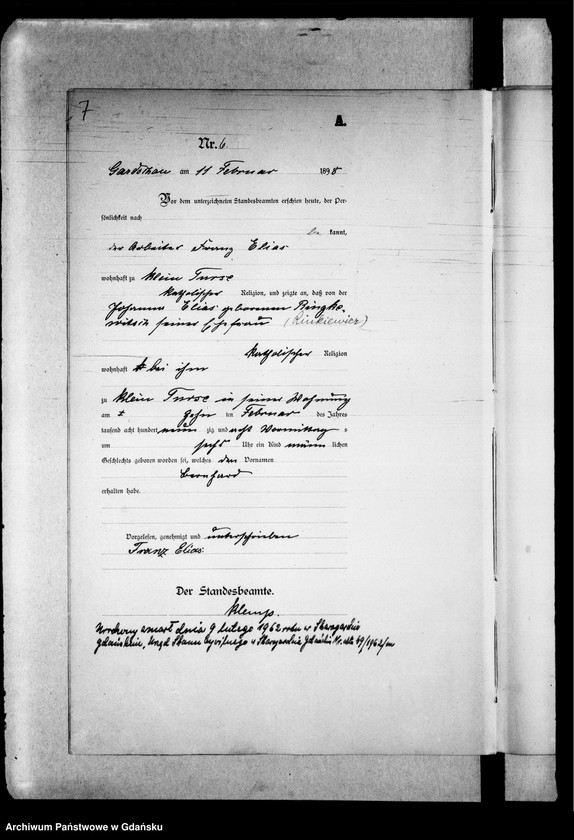 7
A.
Nr. 6
Gardschau am 11 Februar 1898
Vor dem unterzeichneten Standesbeamten erschien heute, der Per-
sönlichkeit nach
be kannt,
der Arbeiter Franz Elias
wohnhaft zu Klein Turse
katholischer Religion, und zeigte an, daß von der
Johanna Elias geborenen Ringke-
witsch seiner Ehefrau (Rinkiewicz)
katholischer Religion
wohnhaft bei ihm
zu Klein Turse in seiner Wohnung
am zehn ten Februar des Jahres
tausend acht hundert neun zig und acht Vormittag s
um sechs Uhr ein Kind männ lichen
Geschlechts geboren worden sei, welches den Vornamen
Bernhard
erhalten habe.
Vorgelesen, genehmigt und unterschrieben
Franz Elias.
Der Standesbeamte.
Klemp.
zmarł dnia 9 lutego 1962 roku w Starogardzie
Gdańskim, Urząd Stanu Cywilnego w Starogardzie Gdański Nr. aktu 49/1962/m
Archiwum Państwowe w Gdańsku